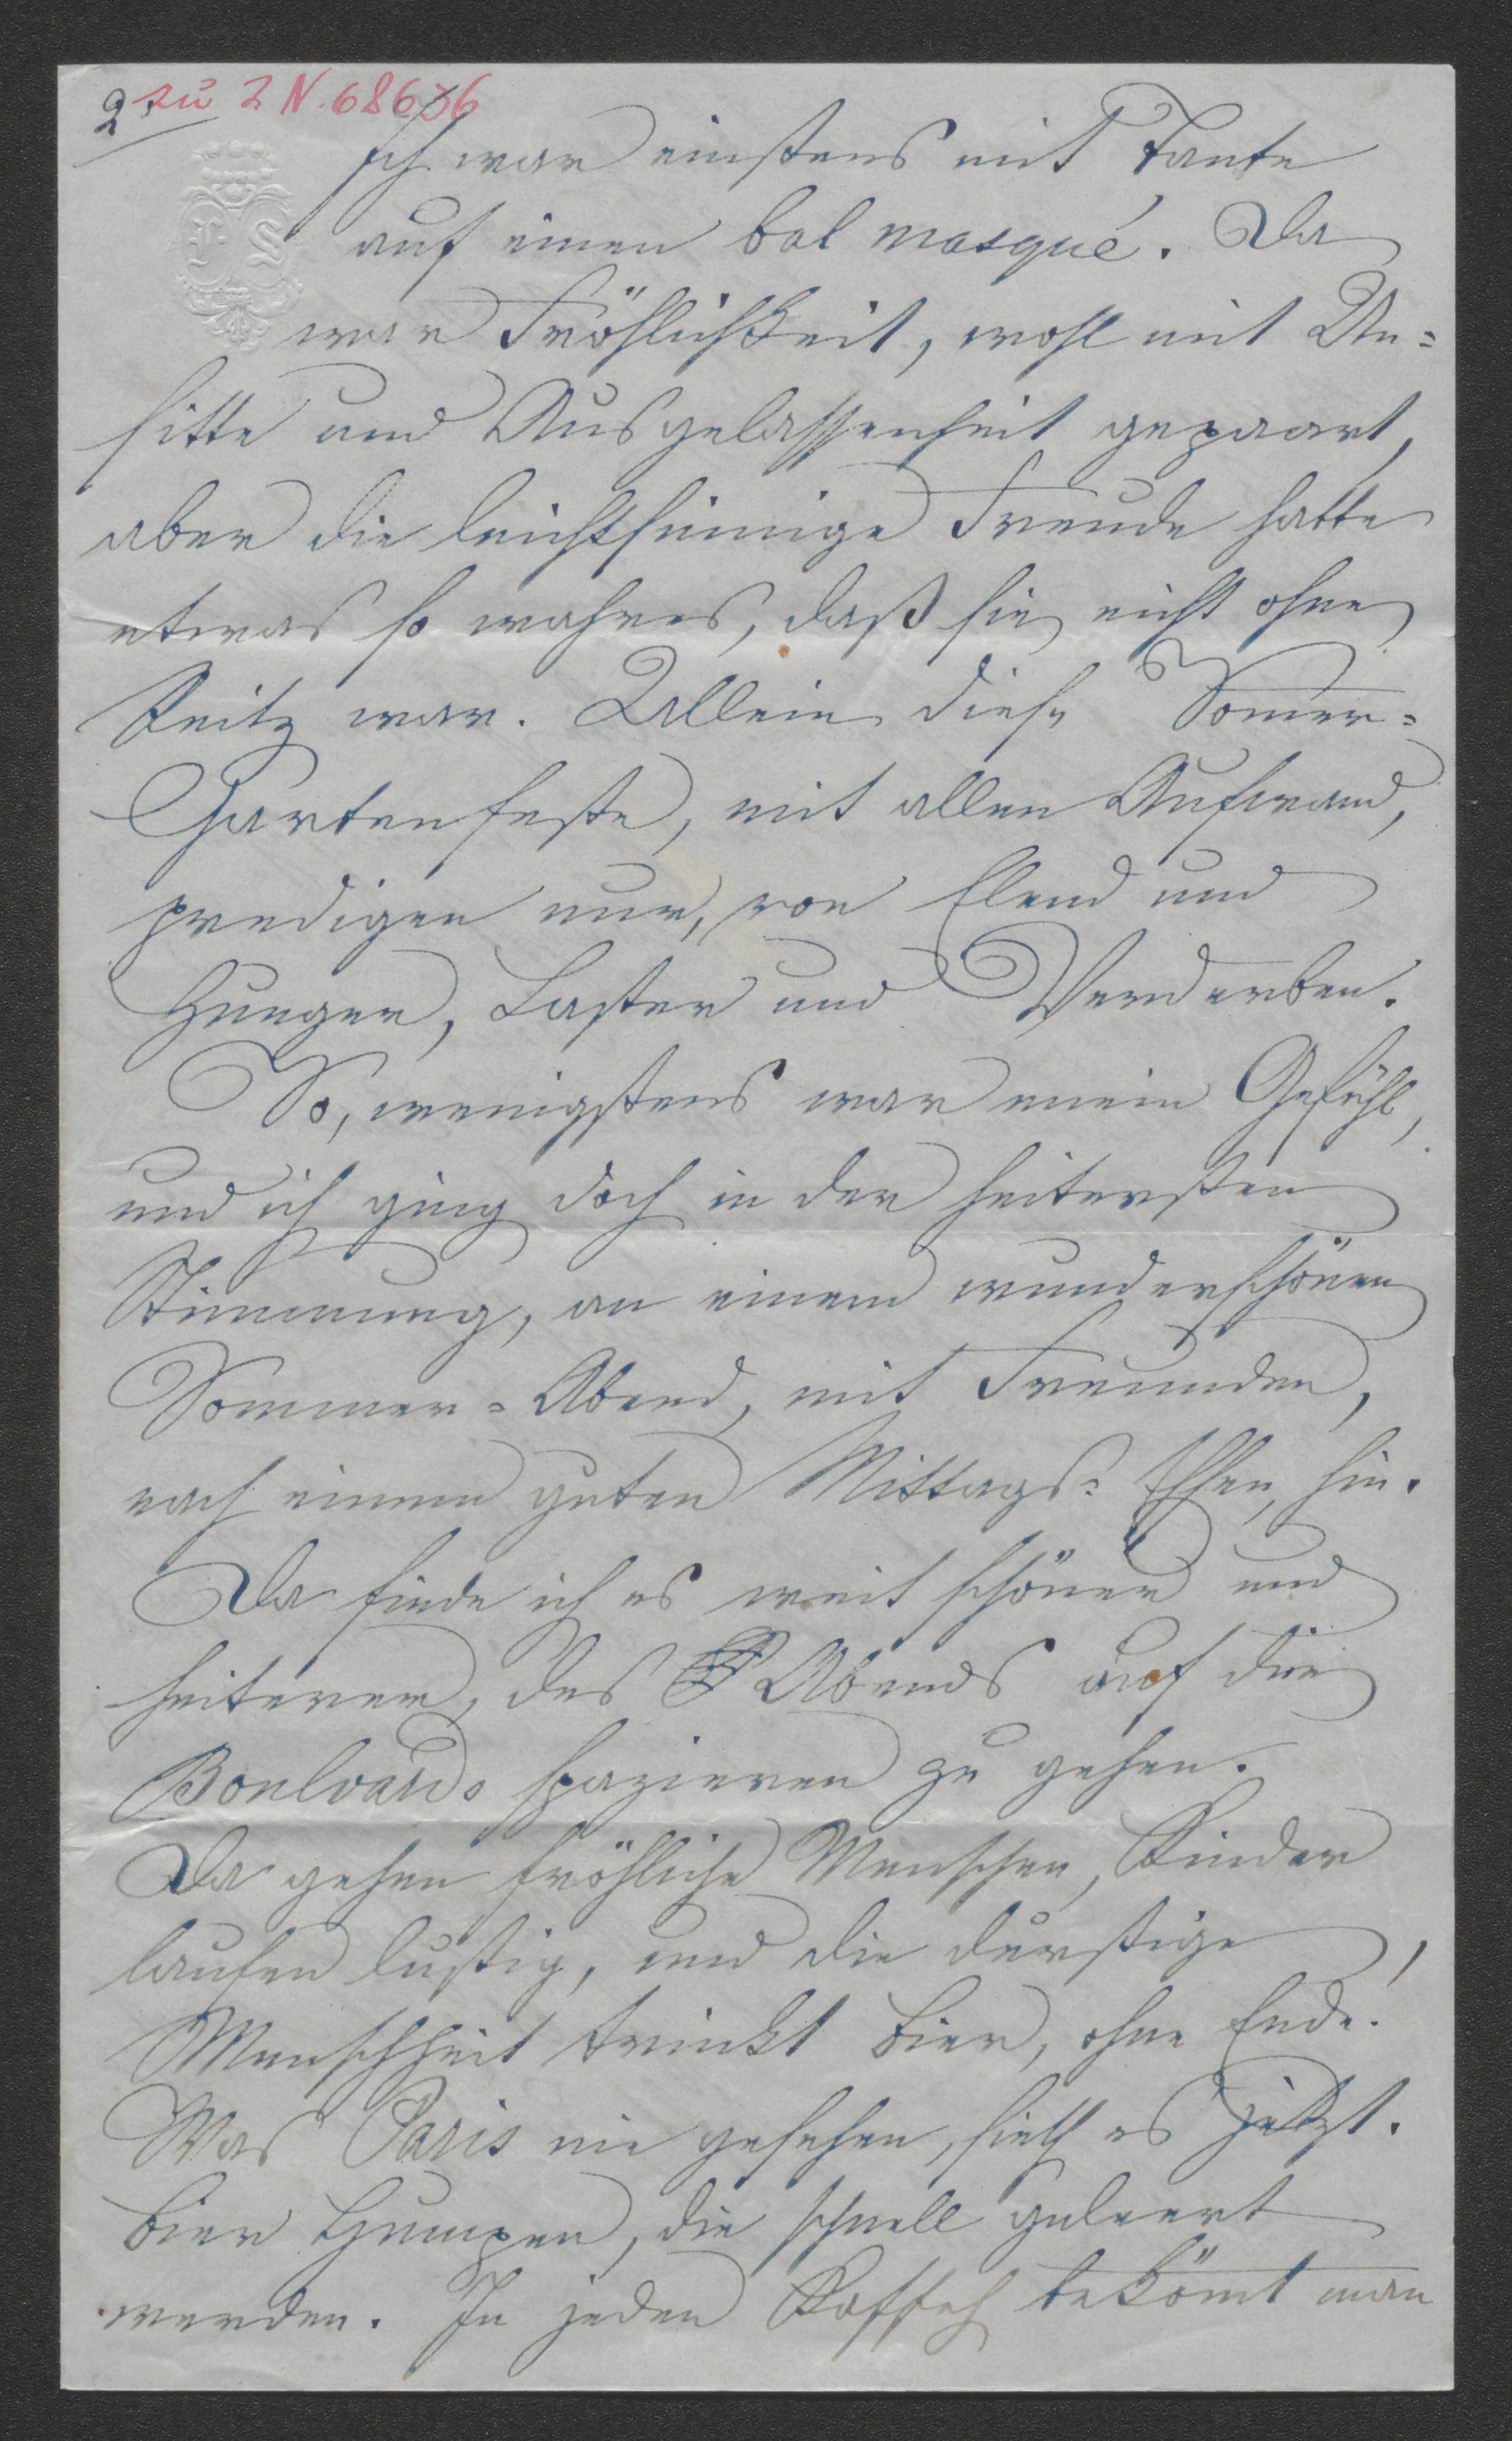 2. zu 2 N. 68636
Ich war einstens mit Tante
auf einen bal masqué. Da
war Fröhlichkeit, wohl mit Un=
sitte und Ausgelassenheit gepaart,
aber die leichtsinnige Freude hatte
etwas so wahres, daß sie nicht ohne
Reitz war. Allein diese Som̄er=
Gartenfeste, mit allen Aufwand,
predigen nur, von Elend und
Hunger, Laster und Verderben.
So, wenigstens war mein Gefühl,
und ich ging doch in der heitersten
Stimmung, an einem wunderschönen
Sommer=Abend, mit Freunden,
nach einem guten Mittags=Essen, hin.
Da finde ich es weit schöner und
heiterer, des Abends auf die
Boulvards spazieren zu gehen.
Da gehen fröhliche Menschen, Kinder
laufen lustig, und die durstige
Menschheit trinkt Bier, ohne Ende!
Was Paris nie gesehen, sieth es jetzt.
Bier Humpen, die schnell geleert
werden. In jeden Kaffeh beköm̄t man